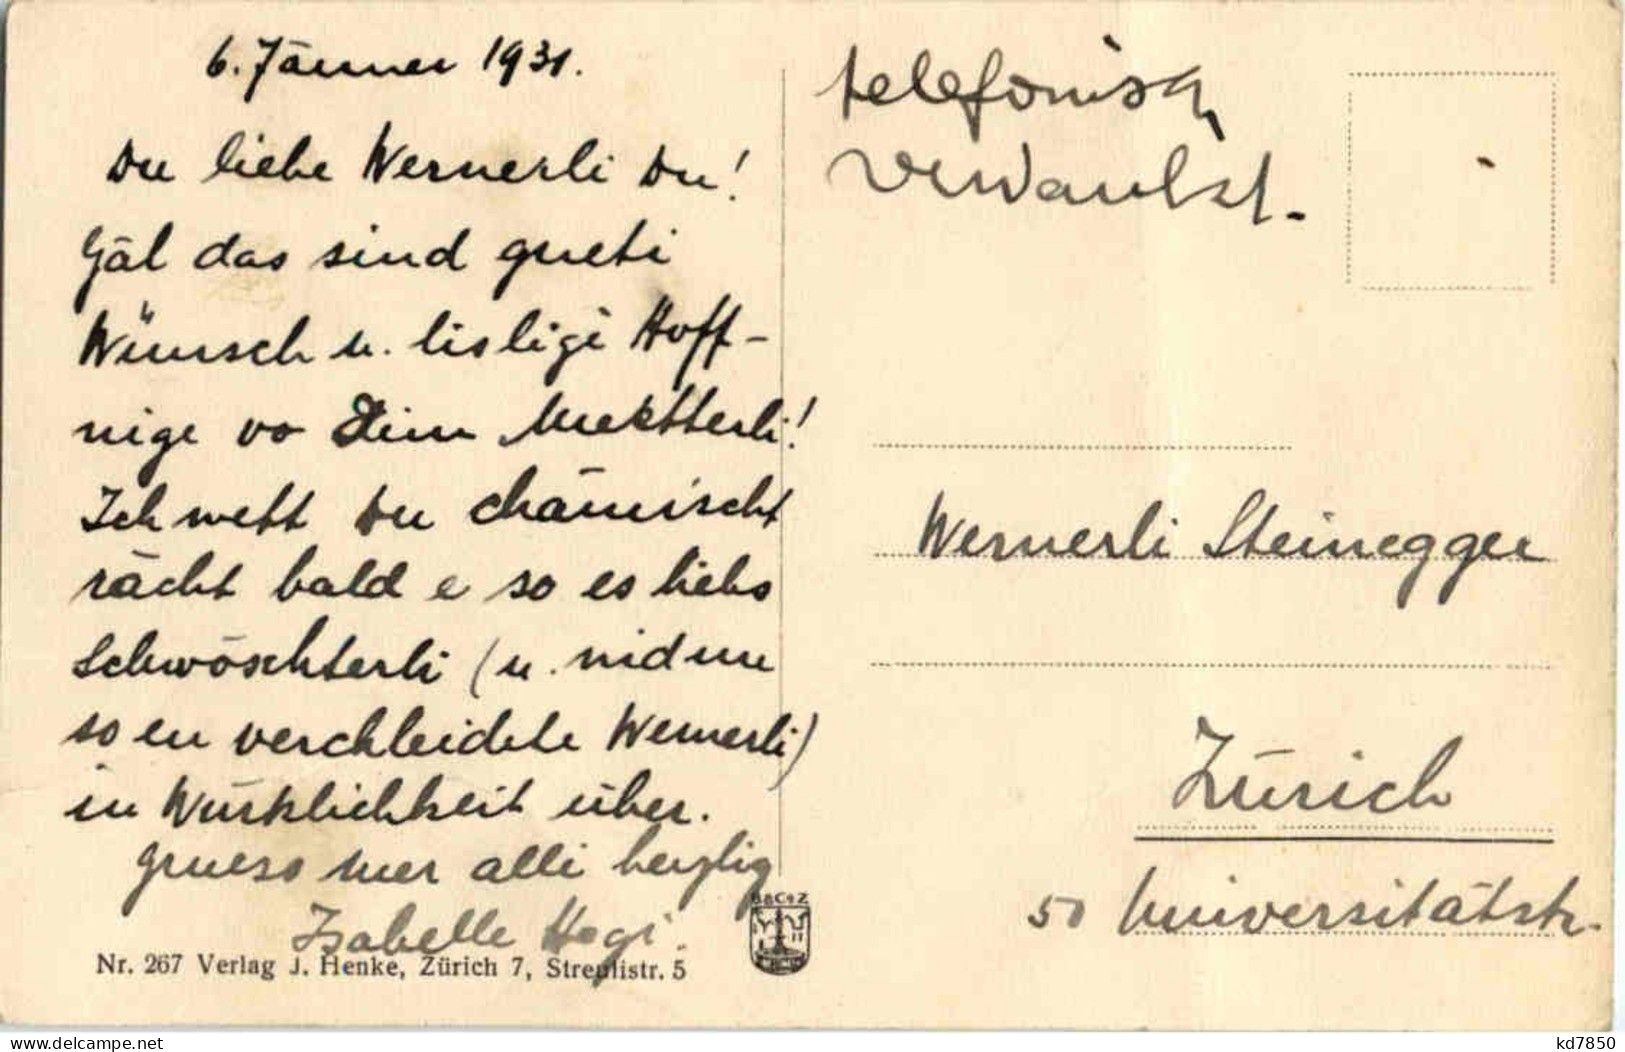 6. Jänner 1931.
Du liebe Wernerli Du!
Gäl das sind gueti
Wünsch u. lisligi Hoff-
nige vo Dim Muetterli!
Ich wett Du chämischt
rächt bald e so es liebs
Schwöschterli (u. nid nu
so en verchleidete Wernerli)
in Würklichkeit über.
Gruess mer alli herzlig
Isabelle Hegi.
Nr. 267 Verlag J. Henke, Zürich 7, Streulistr. 5
telefonisch
verdankt.
Wernerli Steinegger
Zürich
50 Universitätstr.
kd7850